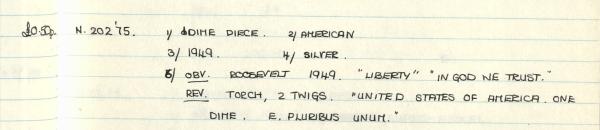 £0.50p. N. 202'75. 1/ DIME PIECE. 2/ AMERICAN
3/ 1949. 4/ SILVER.
5/ OBV. ROOSEVELT 1949. "LIBERTY" "IN GOD WE TRUST."
REV. TORCH, 2 TWIGS. "UNITED STATES OF AMERICA. ONE
DIME. E. PLURIBUS UNUM."